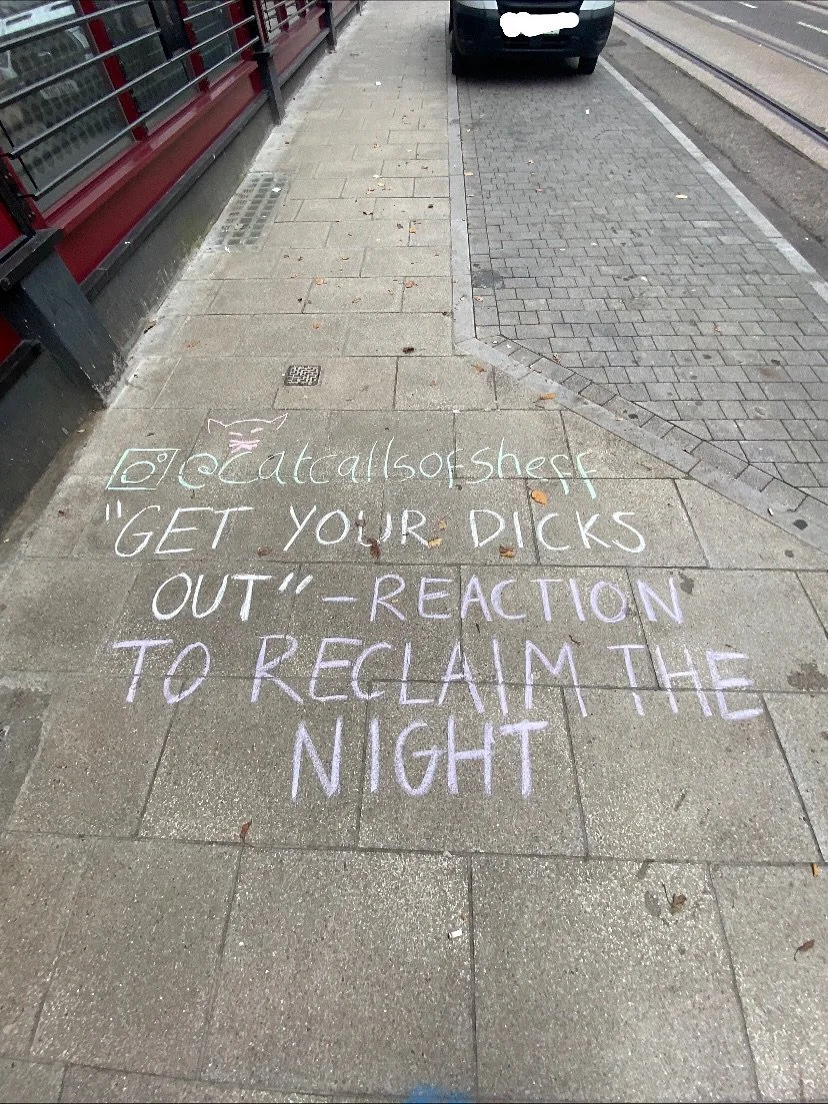 @catcallsofsheff
"GET YOUR DICKS
OUT" - REACTION
TO RECLAIM THE
NIGHT